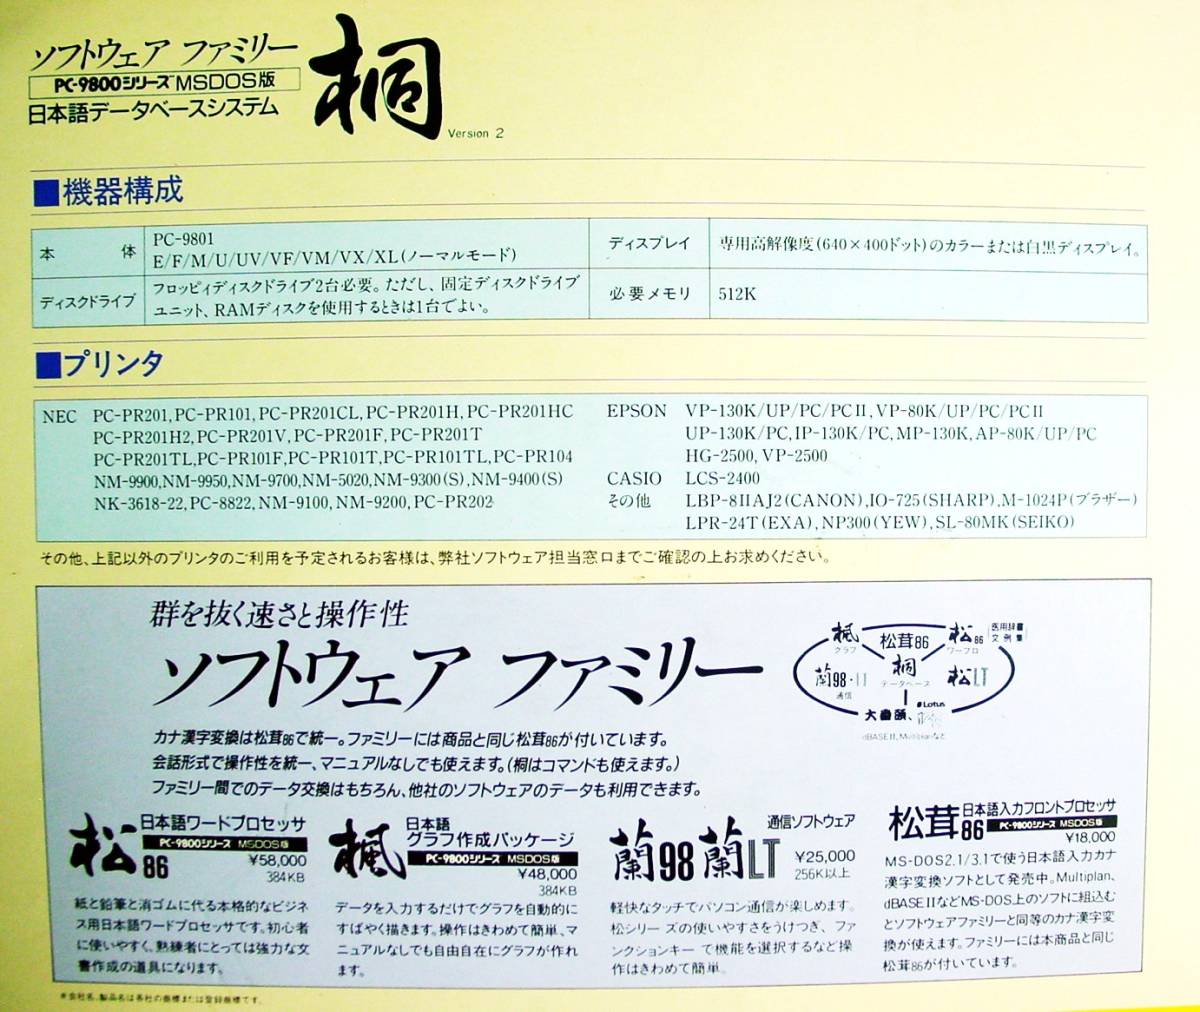 ソフトウェア ファミリー
PC-9800シリーズ MSDOS版
日本語データベースシステム
桐
Version 2
■機器構成
本体
PC-9801
E/F/M/U/UV/VF/VM/VX/XL(ノーマルモード)
ディスプレイ
専用高解像度(640×400ドット)のカラーまたは白黒ディスプレイ。
ディスクドライブ
フロッピィディスクドライブ2台必要。ただし、固定ディスクドライブ
ユニット、RAMディスクを使用するときは1台でよい。
必要メモリ
512K
■プリンタ
NEC PC-PR201,PC-PR101,PC-PR201CL,PC-PR201H,PC-PR201HC
PC-PR201H2,PC-PR201V,PC-PR201F,PC-PR201T
PC-PR201TL,PC-PR101F,PC-PR101T,PC-PR101TL,PC-PR104
NM-9900,NM-9950,NM-9700,NM-5020,NM-9300(S),NM-9400(S)
NK-3618-22,PC-8822,NM-9100,NM-9200,PC-PR202
EPSON VP-130K/UP/PC/PCII,VP-80K/UP/PC/PCII
UP-130K/PC,IP-130K/PC,MP-130K,AP-80K/UP/PC
HG-2500,VP-2500
CASIO LCS-2400
その他 LBP-8IIAJ2(CANON),IO-725(SHARP),M-1024P(ブラザー)
LPR-24T(EXA),NP300(YEW),SL-80MK(SEIKO)
その他、上記以外のプリンタのご利用を予定されるお客様は、弊社ソフトウェア担当窓口までご確認の上お求めください。
群を抜く速さと操作性
ソフトウェア ファミリー
楓
グラフ
松茸86
松86
ワープロ
医用辞書
文例集
桐
データベース
蘭98・LT
通信
松LT
大番頭、
Lotus
dBASEII、Multiplanなど
カナ漢字変換は松茸86で統一。ファミリーには商品と同じ松茸86が付いています。
会話形式で操作性を統一、マニュアルなしでも使えます。(桐はコマンドも使えます。)
ファミリー間でのデータ交換はもちろん、他社のソフトウェアのデータも利用できます。
松86
日本語ワードプロセッサ
PC-9800シリーズ MSDOS版
¥58,000
384KB
紙と鉛筆と消ゴムに代る本格的なビジネ
ス用日本語ワードプロセッサです。初心者
に使いやすく、熟練者にとっては強力な文
書作成の道具になります。
楓
日本語
グラフ作成パッケージ
PC-9800シリーズ MSDOS版
¥48,000
384KB
データを入力するだけでグラフを自動的に
すばやく描きます。操作はきわめて簡単、マ
ニュアルなしでも自由自在にグラフが作れ
ます。
蘭98 蘭LT
通信ソフトウェア
¥25,000
256K以上
軽快なタッチでパソコン通信が楽しめます。
松シリーズの使いやすさをうけつぎ、ファ
ンクションキーで機能を選択するなど操
作はきわめて簡単。
松茸86
日本語入力フロントプロセッサ
PC-9800シリーズ MSDOS版
¥18,000
MS-DOS2.1/3.1で使う日本語入力カナ
漢字変換ソフトとして発売中。Multiplan、
dBASEIIなどMS-DOS上のソフトに組込む
とソフトウェアファミリーと同等のカナ漢字変
換が使えます。ファミリーには本商品と同じ
松茸86が付いています。
※会社名、製品名は各社の商標または登録商標です。